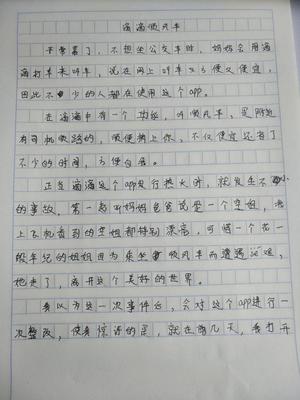 滴滴顺风车
平常累了，不想坐公交车时，妈妈会用滴
滴打车来叫车，说在网上叫车又方便又便宜，
因此不少的人都在使用这个app。
在滴滴中有一个功能，叫顺风车，是附近
有司机顺路的，顺便捎上你，不仅便宜还省了
不少的时间，方便自己。
正当滴滴这个app发行挺长时，就发生不小
的事故，第一起听妈妈爸爸说是一个空姐，
上飞机看到的空姐都特别漂亮，可惜一个花一
般年纪的姐姐因为乘坐顺风车而遭遇
她走了，离开这个美好的世界。
我以为这一次事件后，会对这个app进行一
次整改，使我惊讶的是，就在前几天，我打开